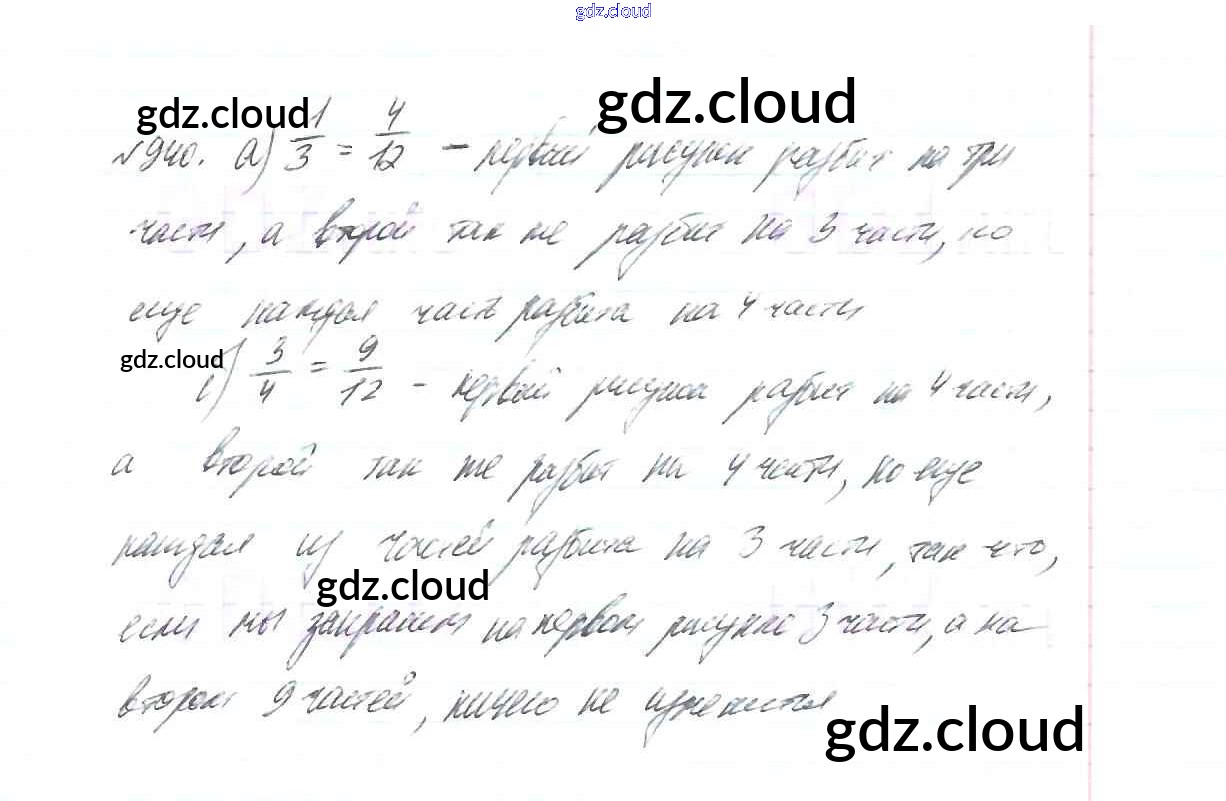 gdz.cloud
gdz.cloud
gdz.cloud
№940. а) 1/3 = 4/12 – первый рисунок разбит на три
части, а второй так же разбит на 3 части, но
еще каждая часть разбита на 4 части
gdz.cloud
в) 3/4 = 9/12 – первый рисунок разбит на 4 части,
а второй так же разбит на 4 части, но еще
каждая из частей разбита на 3 части, так что,
gdz.cloud
если мы закрасим на первом рисунке 3 части, а на
втором 9 частей, ничего не изменится
gdz.cloud